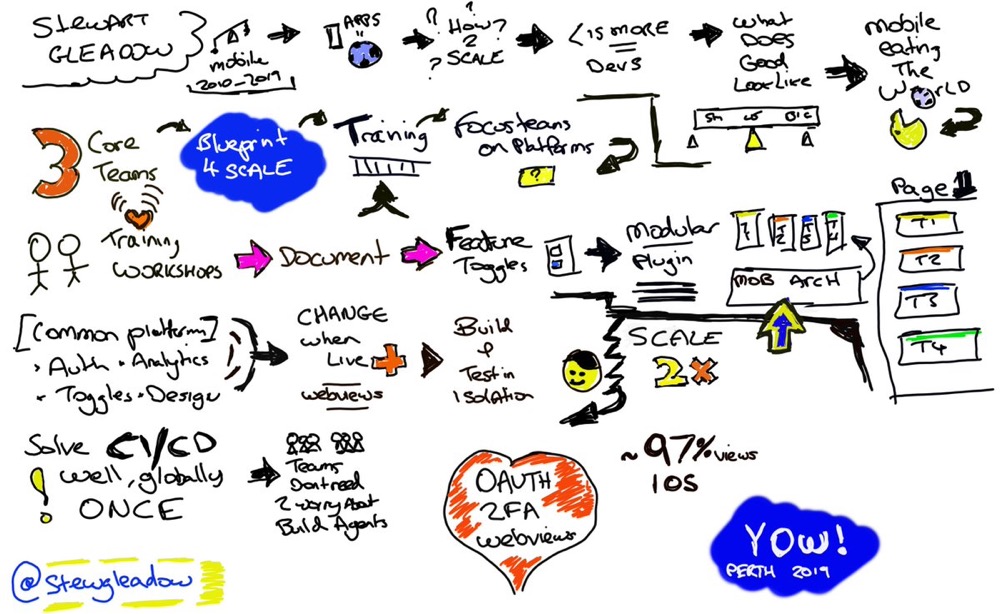 STEWART
GLEADOW
mobile
2010-2019
APPS
?
?
How?
2
? SCALE
< is more
Devs
What
DOES
Good
Look Like
mobile
eating
The
World
3 Core
Teams
Blueprint
4 SCALE
Training
Focus teams
on Platforms
?
Training
WORKSHOPS
Document
Feature
Toggles
Modular
Plugin
T1
T2
T3
T4
MOB ARCH
Page 1
T1
T2
T3
T4
[Common platform]
• Auth • Analytics
• Toggles • Design
CHANGE
when
Live
webviews
Build
&
Test in
isolation
SCALE
2x
Solve CI/CD
! well, globally
ONCE
Teams
Dont need
2 worry About
Build Agents
OAUTH
2FA
webviews
~97% views
IOS
YOW!
PERTH 2019
@stewgleadow